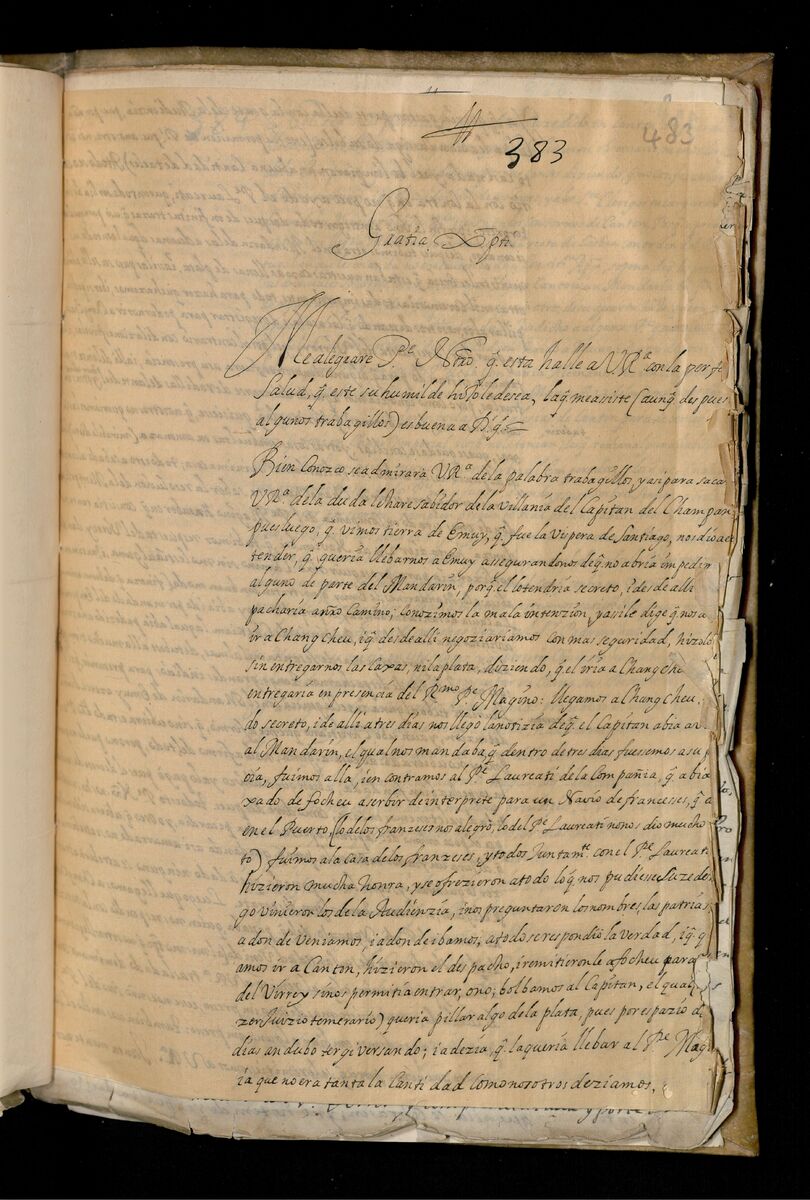 383
483
Gratia Xpti.
Me alegrare Pe. Nro. q̃ esta halle a VRa. con la perfe
Salud, q̃ este su humilde hijo le desea, la q̃ me assiste (aunq̃ despues
algunos trabagillos) es buena a D. g.
Bien conozco se admirara VRa. de la palabra trabagillos, y asi para saca
VRa. de la duda le hare sabidor de la villanía del Capitan del Champan
pues luego, q̃ vimos tierra de Emuy, q̃ fue la vispera de Santiago, nos dio a e
tender, q̃ queria llebarnos a Emuy assegurandonos de q̃ no abria impedim
alguno de parte del Mandarin, porq̃ el lo tendria secreto, i desde alli
pacharia a nro. Camino; conozimos la mala intenzion, y asi le dige q̃ nos a
ir a Chang cheu, i q̃ desde alli negoziariamos con mas seguridad, hizolo
sin entregarnos las caxas, ni la plata, diziendo, q̃ el iria a Chang che
entregaria en presencia del Rmo. Pe. Magino: llegamos a Chang cheu,
do secreto, i de alli a tres dias nos llegò la notizia de q̃ el Capitan abia av
al Mandarin, el qual nos mandaba, q̃ dentro de tres dias fuesemos a su p
cia, fuimos alla, i encontramos al Pe. Laureati de la Compañia, q̃ abia
xado de focheu a serbir de interprete para un Navio de francesses, q̃ a
en el Puerto, (lo de los franzeses nos alegrò, lo del Pe. Laureati no nos dio mucho
to) fuimos a la casa de los franzeses, y todos Juntamte. con el Pe. Laurea
hizieron mucha honra, y se ofrezieron a todo lo q̃ nos pudiesse Suzede
go vinieron los de la Audienzia, i nos preguntaron los nombres, las patrias
a donde veniamos, i a donde ibamos, a todo se respondio la verdad, i q̃ q
amos ir a Canton, hizieron el despacho, i remitieronle a focheu para
del Virrey si nos permitia entrar, o no; bolbamos al Capitan, el qual
zer Juizio temerario) queria pillar algo de la plata, pues por espazio d
dias andubo tergiversando; ia dezia, q̃ la queria llebar al Pe. Magi
ia que no era tanta la Cantidad como nosotros deziamos,